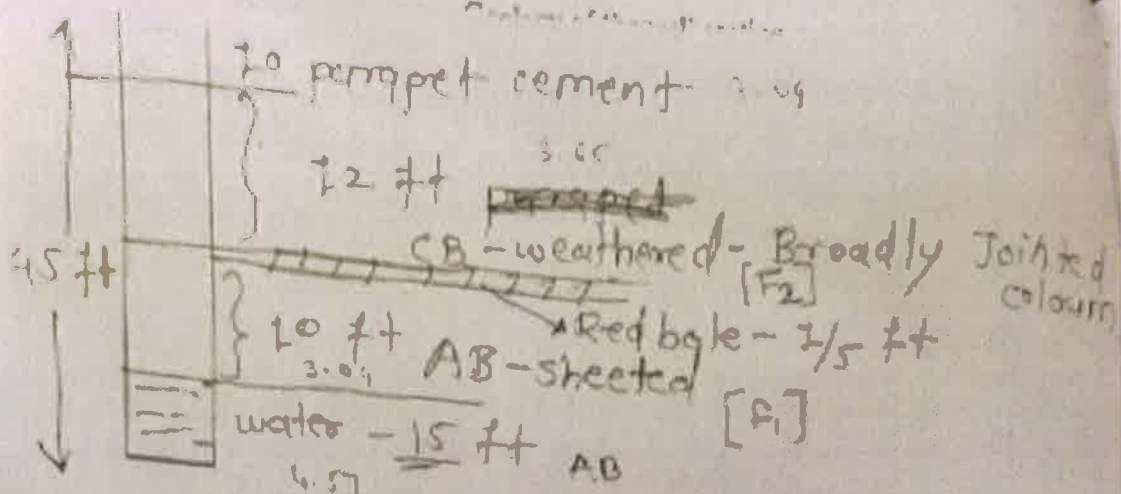 10 parapet cement 3.04
12 ft 3.65
45 ft
CB - weathered - Broadly Jointed
[F2] coloum
Red bole - 1/5 ft
10 ft
3.04 AB - sheeted
[F1]
water - 15 ft AB
4.57